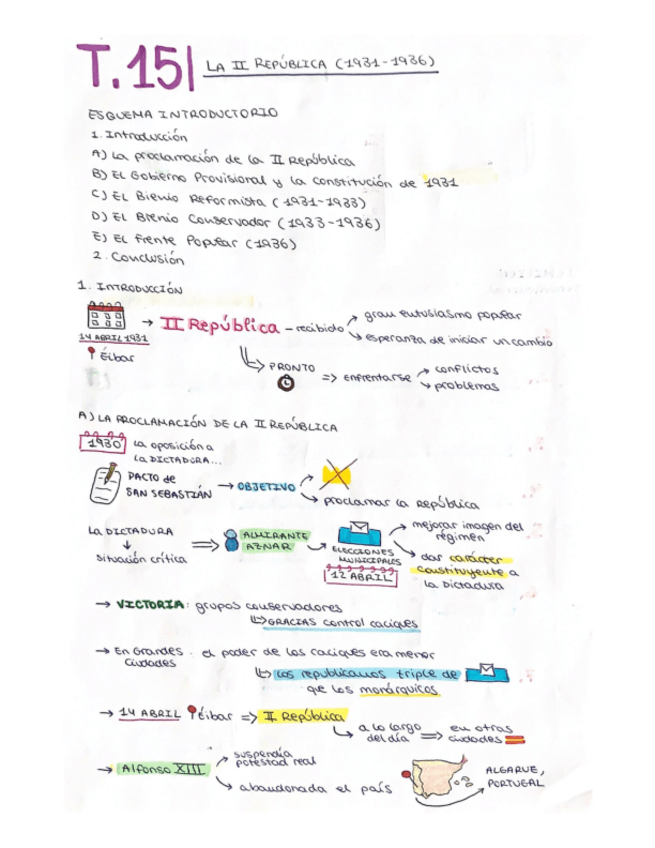 T.15| LA II REPÚBLICA (1931-1936)
ESQUEMA INTRODUCTORIO
1. Introducción
A) La proclamación de la II República
B) El Gobierno Provisional y la constitución de 1931
C) El Bienio Reformista (1931-1933)
D) El Bienio Conservador (1933-1936)
E) El Frente Popular (1936)
2. Conclusión
1. INTRODUCCIÓN
14 ABRIL 1931
Éibar
→ II República - recibido
gran entusiasmo popular
esperanza de iniciar un cambio
PRONTO
=> enfrentarse
conflictos
problemas
A) LA PROCLAMACIÓN DE LA II REPÚBLICA
1930 la oposición a
la DICTADURA...
PACTO de
SAN SEBASTIÁN
→ OBJETIVO
proclamar la República
La DICTADURA
↓
situación crítica
=> ALMIRANTE
AZNAR
ELECCIONES
MUNICIPALES
12 ABRIL
mejorar imagen del
régimen
dar carácter
constituyente a
la Dictadura
→ VICTORIA: grupos conservadores
GRACIAS control caciques
→ En Grandes
Ciudades
: el poder de los caciques era menor
los republicanos triple de
que los monárquicos
→ 14 ABRIL Éibar => II República
a lo largo
del día
=> en otras
ciudades
→ Alfonso XIII
suspendía
potestad real
abandonada el país
ALGARVE,
PORTUGAL